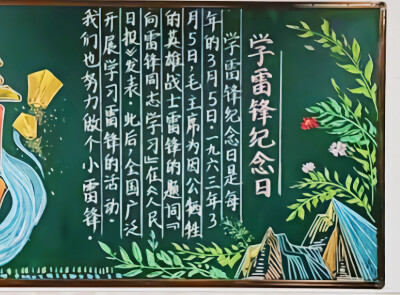 学雷锋纪念日
学雷锋纪念日是每
年的3月5日·一九六三年3
月5日,毛主席为因公牺牲
的英雄战士雷锋的题词『
向雷锋同志学习』在《人民
日报》发表·此后,全国广泛
开展学习雷锋的活动
我们也努力做个小雷锋·